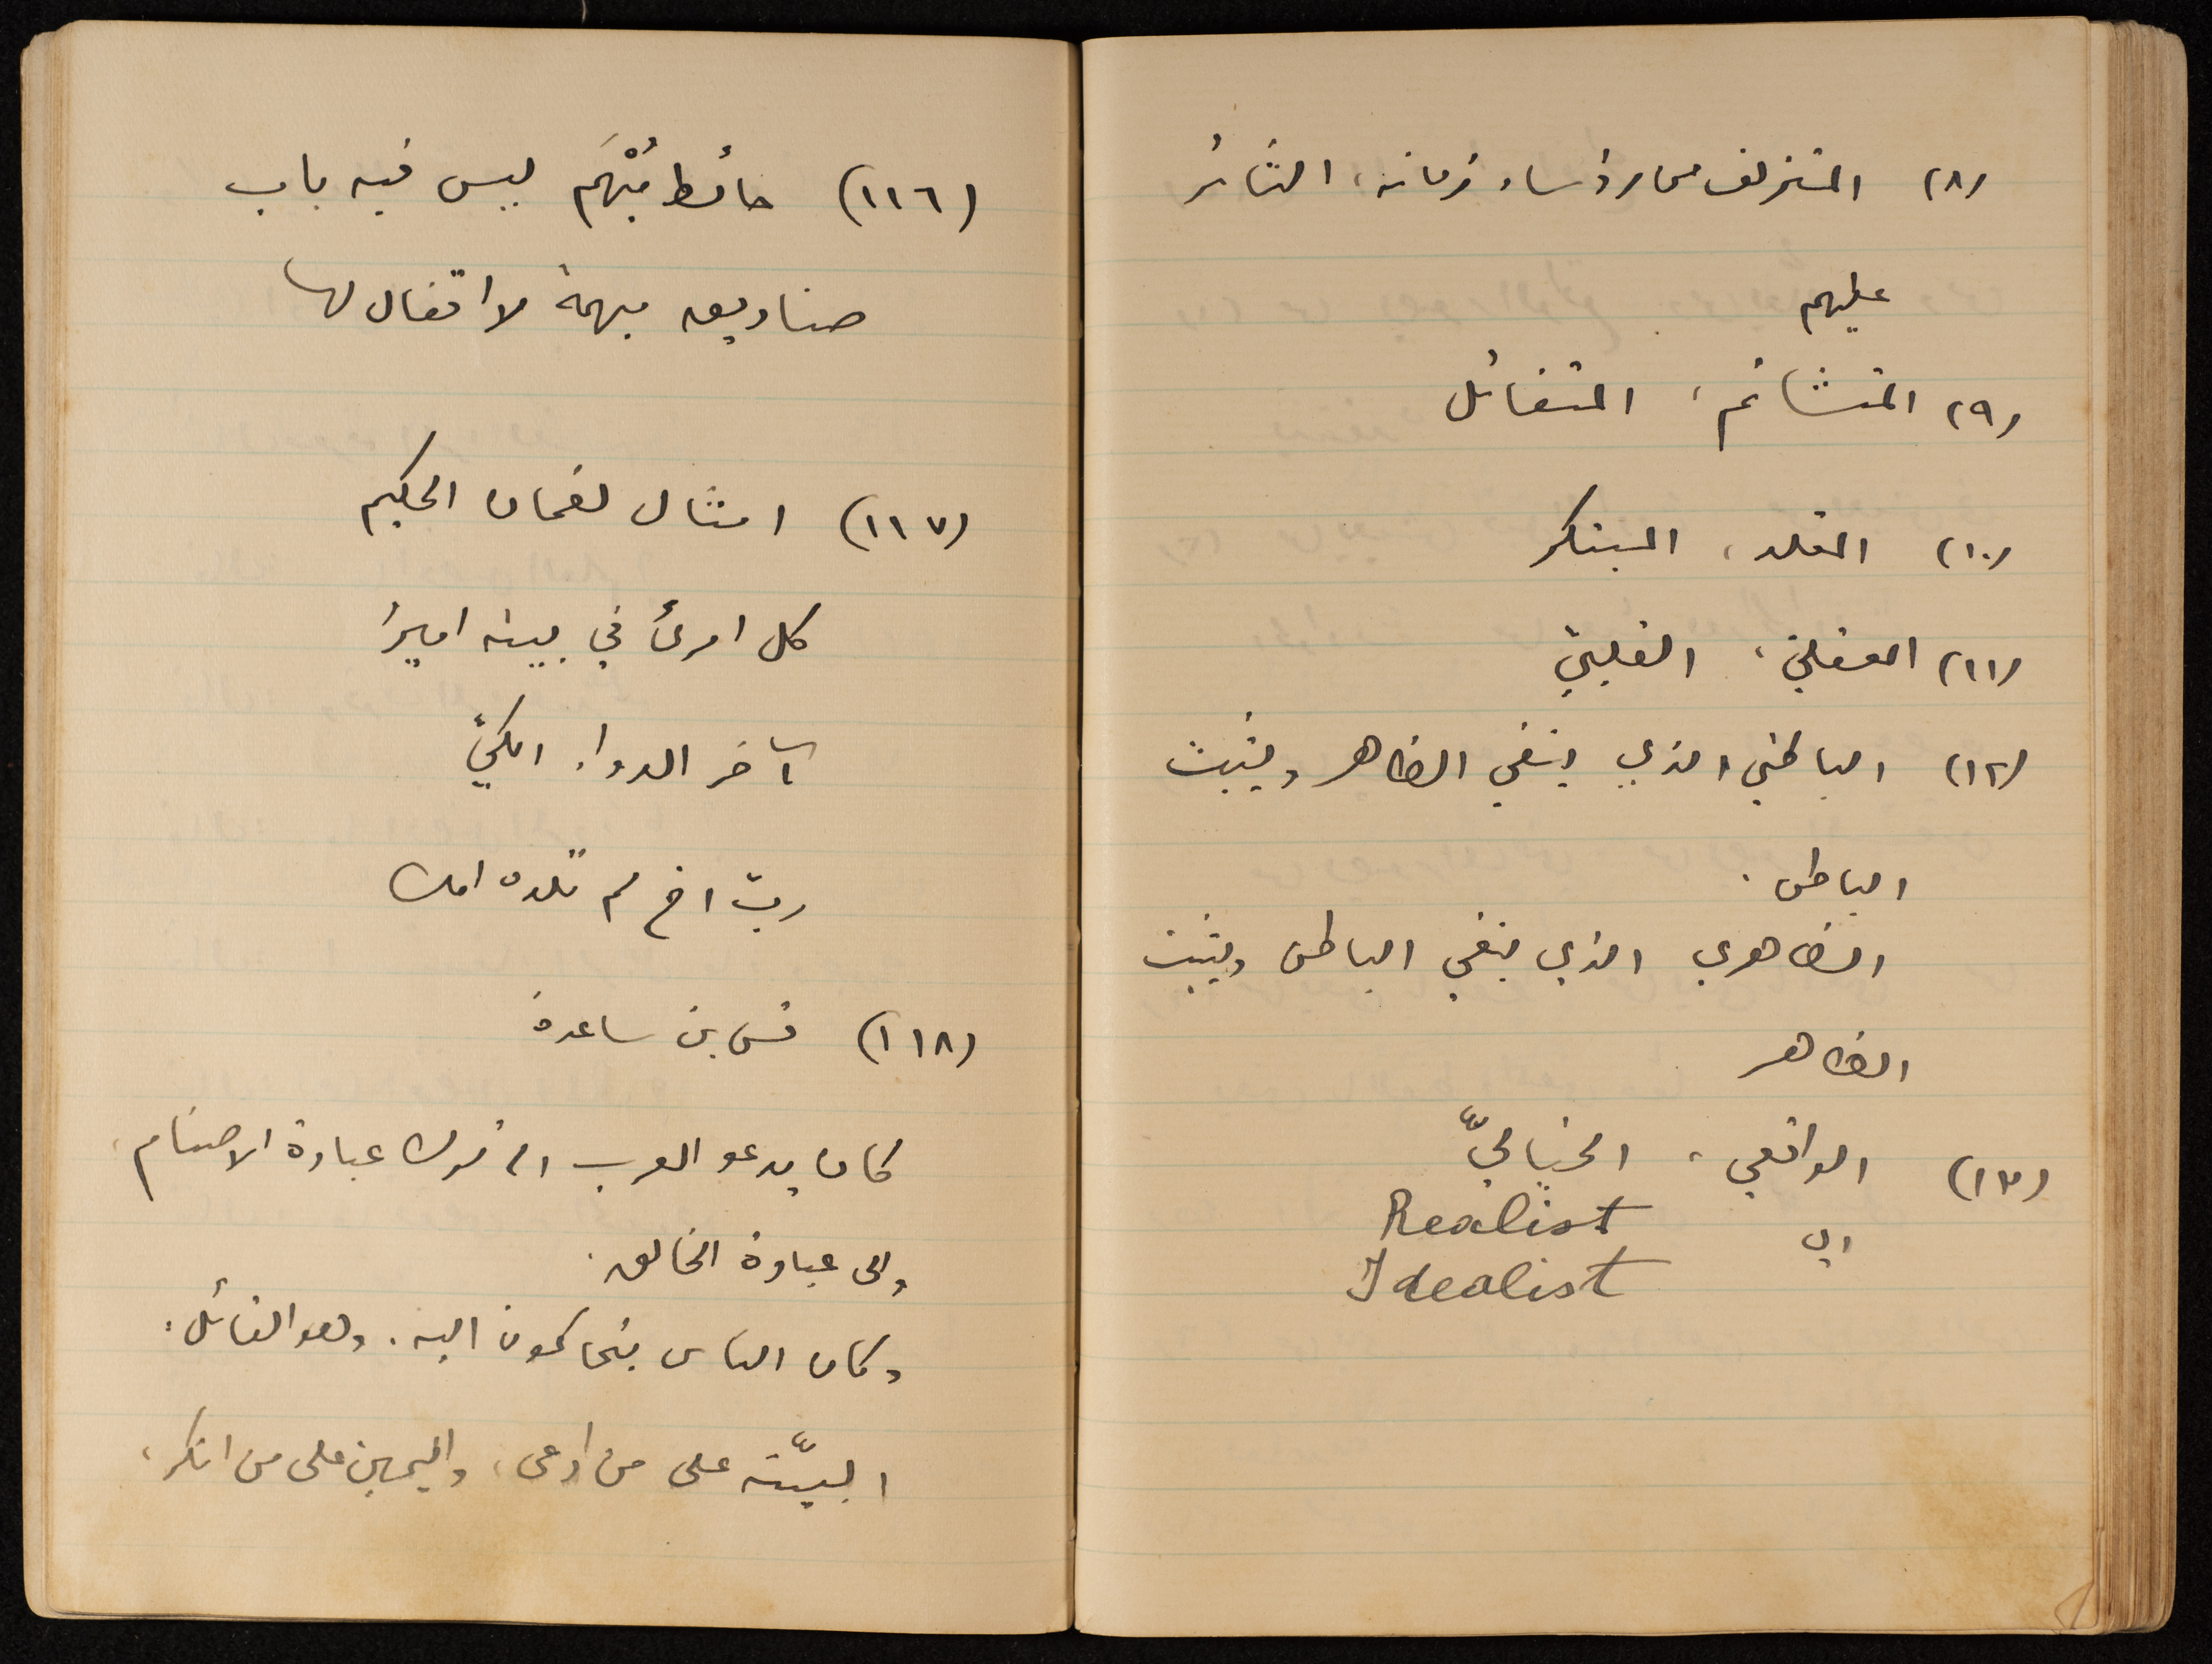 (٨) المتزلف الى رؤساء زمانه، الثائر
عليهم
(٩) المتشائم، المتفائل
(١٠) المقلد، المبتكر
(١١) العقليّ، القلبيّ
(١٢) الباطني الذي ينفي الظاهر ويثبت
الباطن.
الظاهري الذي ينفي الباطن ويثبت
الظاهر
(١٣) الواقعي، الخياليّ
اي Realist
Idealist
(١١٦) حائط مُبْهَم ليس فيه باب
صناديق مبهمة لا اقفال لها
(١١٧) امثال لقمان الحكيم
كل امرئ في بيته امير
آخر الدواء الكيّ
ربّ اخ لم تلده امك
(١١٨) قس بن ساعدة
كان يدعو العرب الى ترك عبادة الاصنام،
والى عبادة الخالق.
وكان الناس يتحاكمون اليه. وهو القائل:
البيّنة على من ادعى، واليمين على من انكر،